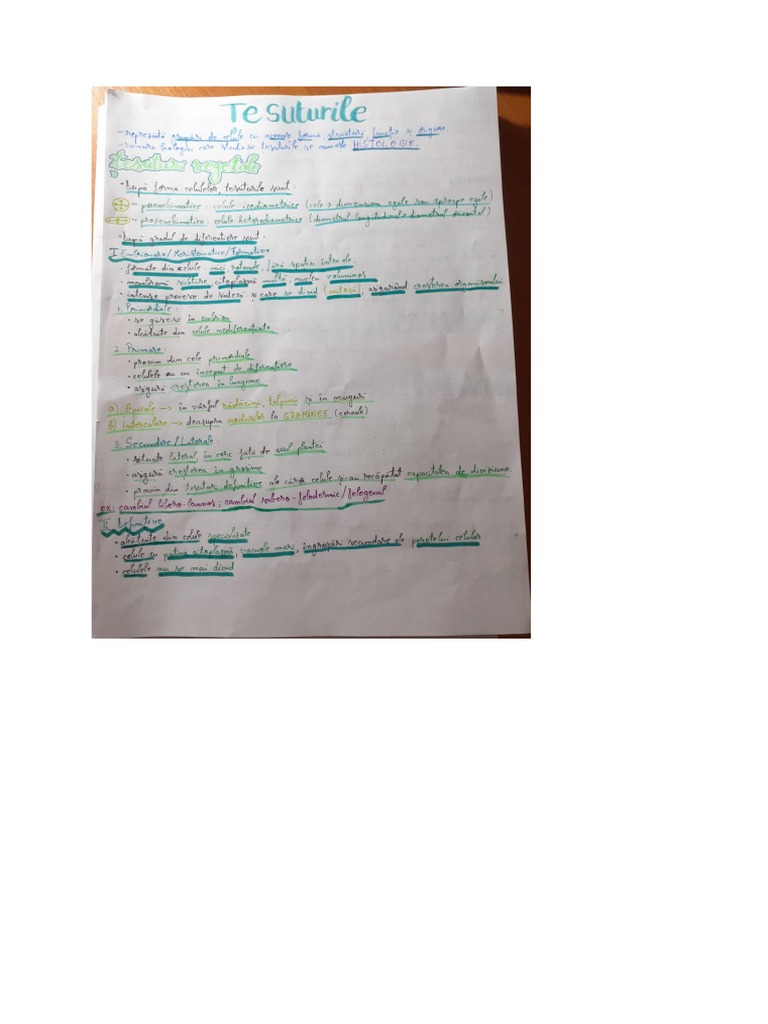 Țesuturile
- reprezintă grupări de celule cu aceeași formă, structură, funcție și origine.
- ramura biologiei care studiază țesuturile se numește HISTOLOGIE.
țesuturi vegetale
• După forma celulelor, țesuturile sunt:
~ parenchimatice: celule izodiametrice (cele 3 dimensiuni egale sau aproape egale)
~ prozenchimatice: celule heterodiametrice (diametrul longitudinal > diametrul orizontal)
• După gradul de diferențiere sunt:
I Embrionare/Meristematice/Formative
• formate din celule mici rotunde, fără spații între ele.
• membrană subțire, citoplasmă multă, nucleu voluminos
• intense procese de sinteză și care se divid (mitoză), asigurând creșterea organismului.
1. Primordiale:
• se găsesc în embrion
• alcătuite din celule nediferențiate
2. Primare:
• provin din cele primordiale
• celulele au un început de diferențiere
• asigură creșterea în lungime
a) Apicale -> în vârful rădăcinii, tulpinii și în muguri
b) Intercalare -> deasupra nodurilor la GRAMINEE (cereale)
3. Secundare/Laterale
• situate lateral, în cerc față de axul plantei
• asigură creșterea în grosime
• provin din țesuturi definitive ale căror celule și-au recăpătat capacitatea de diviziune.
ex: cambiul libero-lemnos; cambiul subero-felodermic/felogenul
II Definitive
• alcătuite din celule specializate
• celule cu puțină citoplasmă, vacuole mari, îngroșări secundare ale peretelui celular
• celulele nu se mai divid